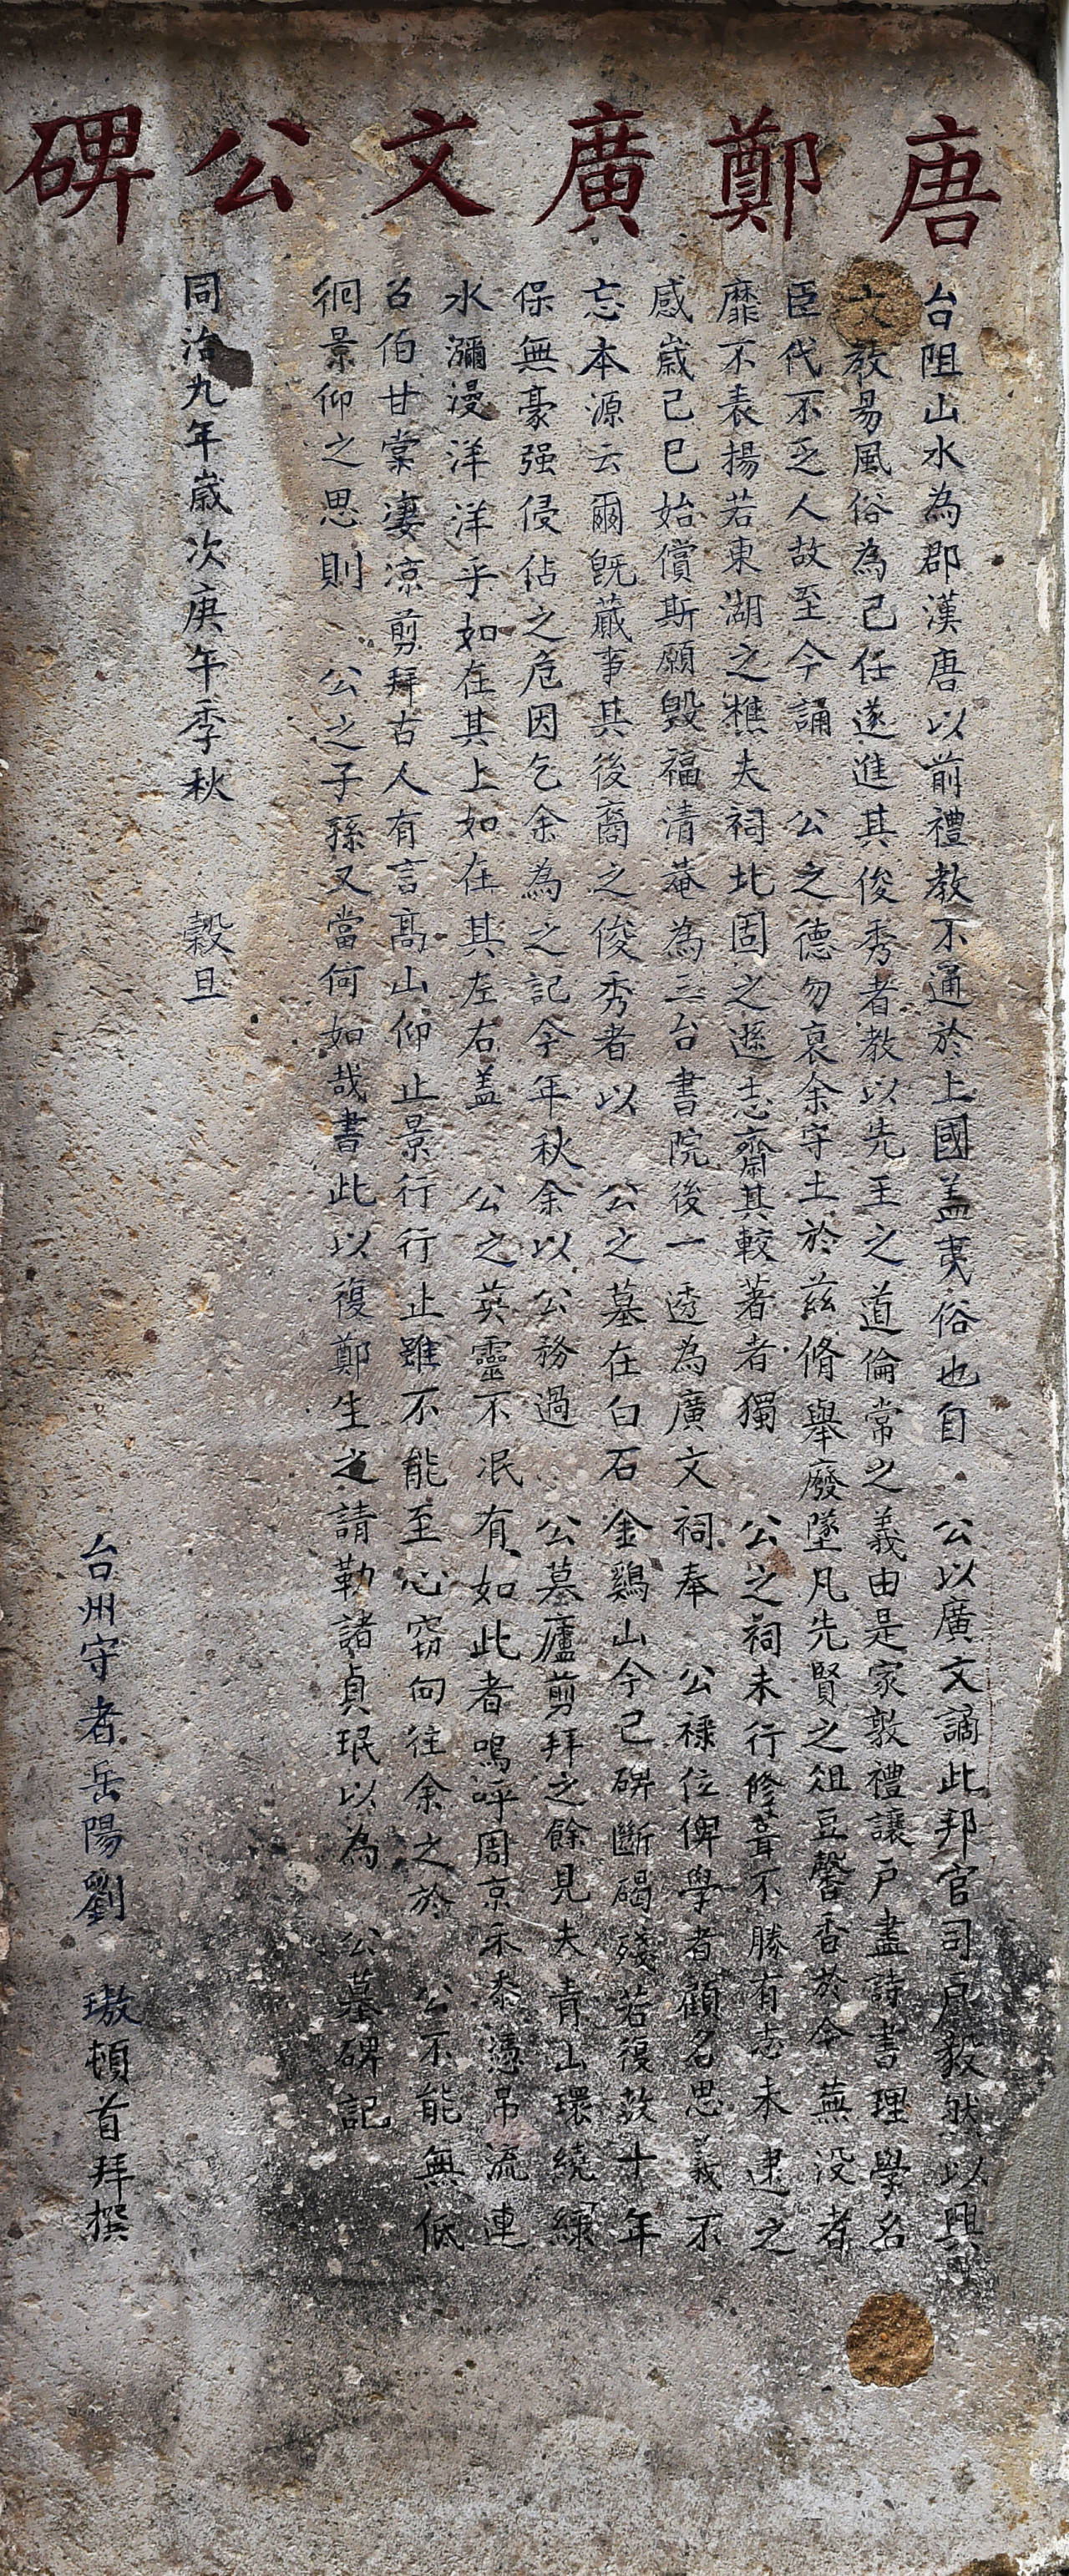 唐鄭廣文公碑
台阻山水為郡漢唐以前禮教不通於上國盖夷俗也自 公以廣文謫此邦官司戶毅然以興
文教易風俗為己任遂進其俊秀者教以先王之道倫常之義由是家敦禮讓戶盡詩書理學名
臣代不乏人故至今誦 公之德勿衰余守土於茲脩舉廢墜凡先賢之俎豆馨香於今蕪没者
靡不表揚若東湖之樵夫祠北固之遜志齋其較著者獨 公之祠未行修葺不勝有志未逮之
感歲己巳始償斯願毀福清菴為三台書院後一透為廣文祠奉 公祿位俾學者顧名思義不
忘本源云爾既蕆事其後裔之俊秀者以 公之墓在白石金鷄山今已碑斷碣殘若復数十年
保無豪强侵佔之危因乞余為之記今年秋余以公務過 公墓廬剪拜之餘見夫青山環繞緑
水瀰漫洋洋乎如在其上如在其左右盖 公之英靈不泯有如此者嗚呼周京禾黍憑吊流連
召伯甘棠淒涼剪拜古人有言髙山仰止景行行止雖不能至心窃向往余之於 公不能無低
徊景仰之思則 公之子孫又當何如哉書此以復鄭生之請勒諸貞珉以為 公墓碑記
同治九年歲次庚午季秋 穀旦
台州守者岳陽劉 璈頓首拜撰